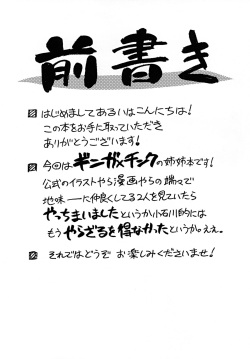 前書き
はじめましてあるいはこんにちは!
この本をお手に取っていただき
ありがとうございます!
今回はギンガ×チンクの姉妹本です!
公式のイラストやら漫画やらの端々で
地味ーに仲良くしてる2人を見ていたら
やっちまいましたというか小石川的には
もうやらざるを得なかったというか。ええ。
それではどうぞ お楽しみくださいませ!